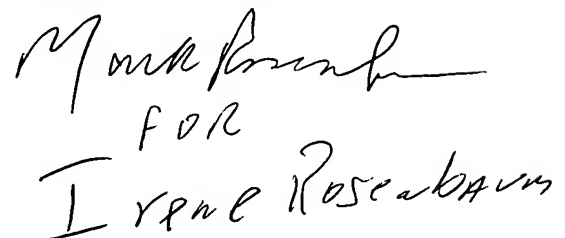 Mark Rosenbaum
FOR
Irene Rosenbaum